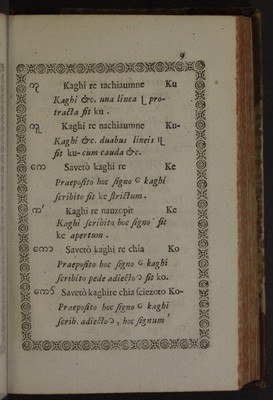 9
ကူ Kaghi re tachiaumne Ku
Kaghi &c. una linea ꞁ pro-
tracta fit ku.
ကူ Kaghi re nachiaumne Ku-
Kaghi &c. duabus lineis
fit ku- cum cauda &c.
ကေ Savetò kaghi re Ke
Præposito hoc signo ေ kaghi
scribito fit ke strictum.
က' Kaghi re nauzopit Ke
Kaghi scribito hoc signo ' fit
ke apertum.
ကော Savetò kaghi re chia Ko
Præposito hoc signo ေ kaghi
scribito pede adiecto ာ fit ko.
ကော် Savetò kaghire chia sciezoto Ko-
Præposito hoc signo ေ kaghi
scrib. adiecto ာ, hoc signum '